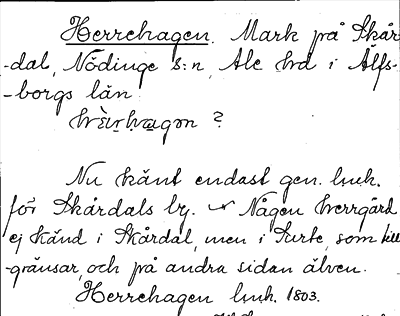 Herrehagen. Mark på Skår-
-dal, Nödinge s:n, Ale hd i Älfs-
-borgs län
hɛ̀rhagən ?
Nu känt endast gen. lmk.
för Skårdals by. Någon herrgård
ej känd i Skårdal, men i Surte, som till
-gränsar, och på andra sidan älven.
Herrehagen lmk. 1803.